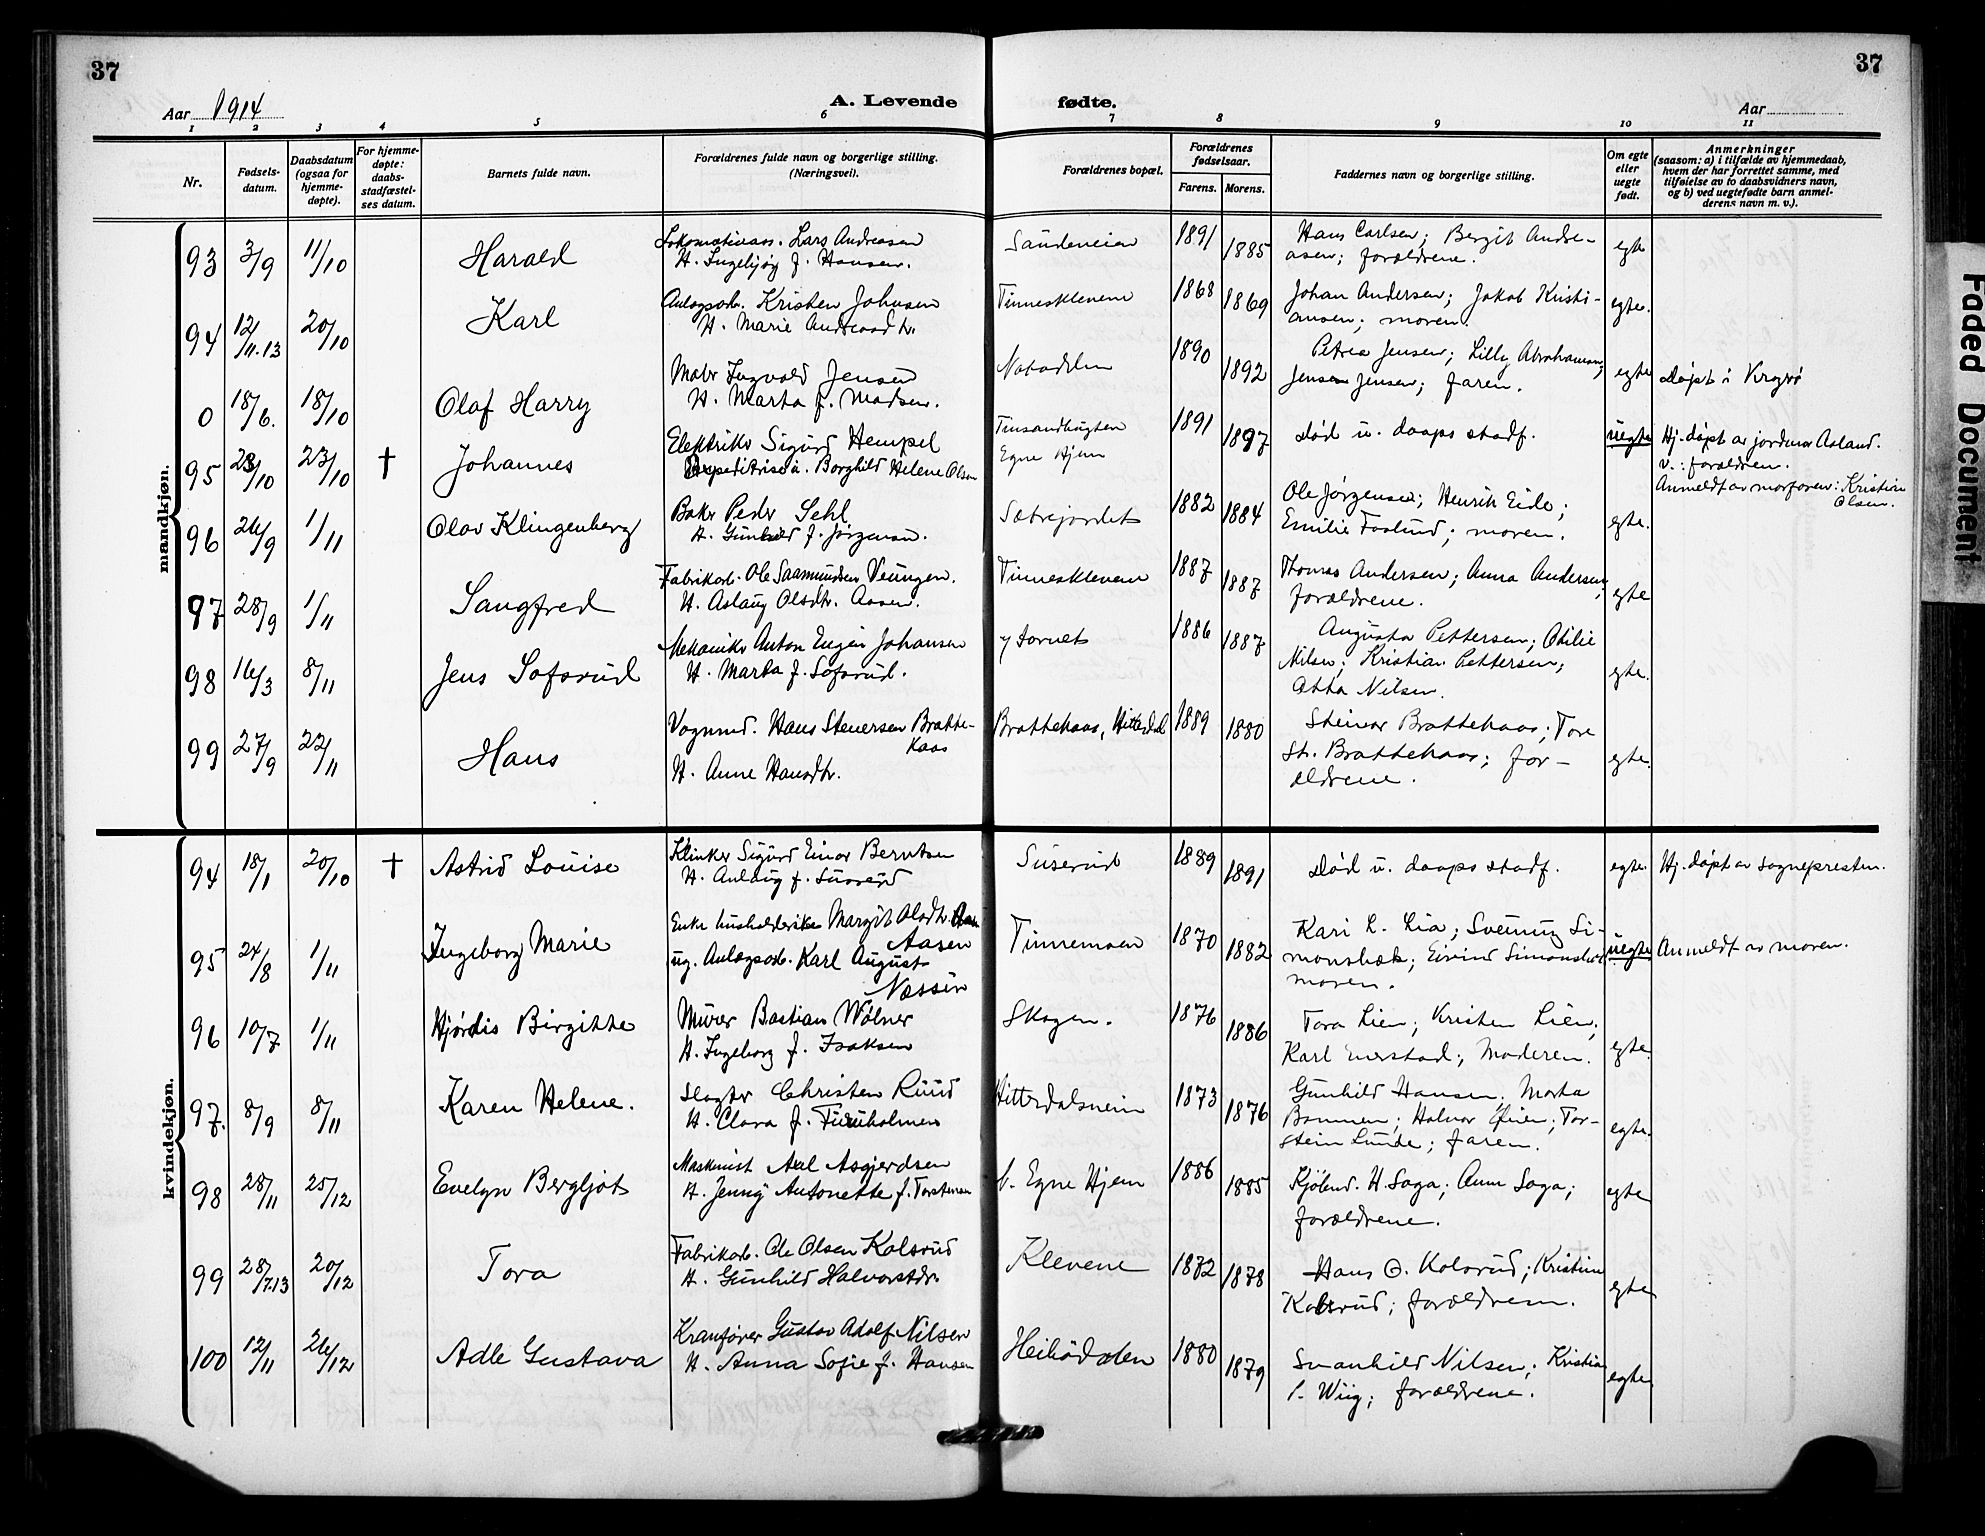 37
37
Aar 1914
A. Levende fødte.
Aar
1 2 3 4 5 6 7 8 9 10 11
Nr.
Fødsels-
datum.
Daabsdatum
(ogsaa for
hjemme-
døpte).
For hjemme-
døpte:
daabs-
stadfæstel-
ses datum.
Barnets fulde navn.
Forældrenes fulde navn og borgerlige stilling.
(Næringsvei).
Forældrenes bopæl.
Forældrenes
fødselsaar.
Farens. Morens.
Faddernes navn og borgerlige stilling.
Om egte
eller
uegte
født.
Anmerkninger
(saasom: a) i tilfælde av hjemmedaab,
hvem der har forrettet samme, med
tilføielse av to daabsvidners navn,
og b) ved uegtefødte barn anmel-
derens navn m. v.).
mandkjøn.
93 3/9 11/10 Harald
Lars Andreasen
H. Ingebjøg f. Hansen.
Saudeveien 1891 1885
Hans Carlsen; Bergit Andre-
asen; forældrene.
egte
94 12/11.13 20/10 Karl
Anlægsarb. Kristen Johnsen
H. Marie Andreasdtr.
Tinnesklevene 1868 1869
Johan Andersen; Jakob Kristi-
ansen; moren.
egte.
0 18/6. 18/10 Olaf Harry
Maler Ingvald Jensen
H. Marta f. Madsen.
Notodden 1890 1892
Petrea Jensen; Lilly Abrahamsen;
Jensen; faren.
egte
Døpt i Kragerø
95 23/10 23/10 † Johannes
Elektriker Sigurd Hempel
Borghild Helene Olsen
Tinsandbugten
Egne Hjem
1891 1897
Død u. daaps stadf.
uegte
Hj. døpt av jordmor Aasland.
v.: forældren.
Anmeldt av morfaren: Kristian
Olsen.
96 26/9 1/11 Olav Klingenberg
Baker Peder Sehl
H. Gunhild f. Jørgensen.
Sætrejordet 1882 1884
Ole Jørgensen; Henrik Eide;
Emilie Foslund; moren.
egte.
97 28/9 1/11 Sangfred
Fabrikarb. Ole Saamundsen Veungen.
H. Aslaug Olsdtr. Aasen.
Tinnesklevene 1887 1887
Thomas Andersen; Anna Andersen;
forældrene.
egte
98 16/3 8/11 Jens Sofsrud
Mekaniker Anton Eugen Johansen
H. Marta f. Sofsrud.
1886 1887
Augusta Pettersen; Otilie
Nilsen; Kristian Pettersen;
Otto Nilsen.
egte.
99 27/9 22/11 Hans
Vognmd. Hans Stenersen Bratte-
kaas
H. Anne Hansdtr.
Brattekaas, Hitterdal 1889 1880
Steinar Brattekaas; Tore
St. Brattekaas; for-
ældrene.
egte.
kvindekjøn.
94 18/1 20/10 † Astrid Louise
Klinker Sigurd Einar Berntsen
H. Aslaug f. Suserud
Suserud 1889 1891
Død u. daaps stadf.
egte.
Hj. døpt av sognepresten.
95 24/8 1/11 Ingeborg Marie
Enke husholderske Margit Olsdtr.
Aasen
ug. Anlægsarb. Karl August
Næssen
Tinnemoen 1870 1882
Kari L. Lia; Sveinung Si-
monsbæk; Eivind Simonsbæk
moren.
uegte
Anmeldt av moren.
96 10/7 1/11 Hjørdis Birgitte
Murer Bastian Wølner
H. Ingeborg f. Isaksen
Skogen. 1876 1886
Tora Lien; Kristen Lien;
Karl Enerstad; Moderen.
egte.
97. 8/9 8/11 Karen Helene.
Slagter Christen Ruud
H. Clara f. Furuholmen
Hitterdalsveien 1873 1876
Gunhild Hansen; Marta
Bommen; Halvor Øien; Tor-
stein Lunde; faren.
egte.
98 28/11 25/12 Evelyn Bergljot
Maskinist Axel Asgjerdsen
H. Jenny Antonette f. Torstensen
b. Egne Hjem 1886 1885
Kjøbmd. H. Saga; Anna Saga;
forældrene.
egte
99 28/7.13 20/12 Tora
Fabrikarb. Ole Olsen Kolsrud
H. Gunhild Halvorsdtr.
Klevene 1872 1878
Hans O. Kolsrud; Kristine
Kolsrud; forældrene.
egte
100 12/11 26/12 Adle Gustava
Kranfører Gustav Adolf Nilsen
H. Anna Sofie f. Hansen
Heibødalen 1880 1879
Svanhild Nilsen; Kristian
P. Wiig; forældrene.
egte.
Faded Document